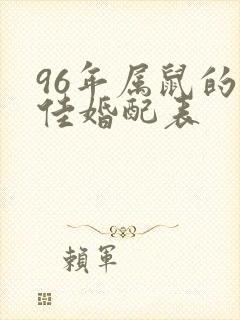 96年属鼠的
佳婚配表
賴軍